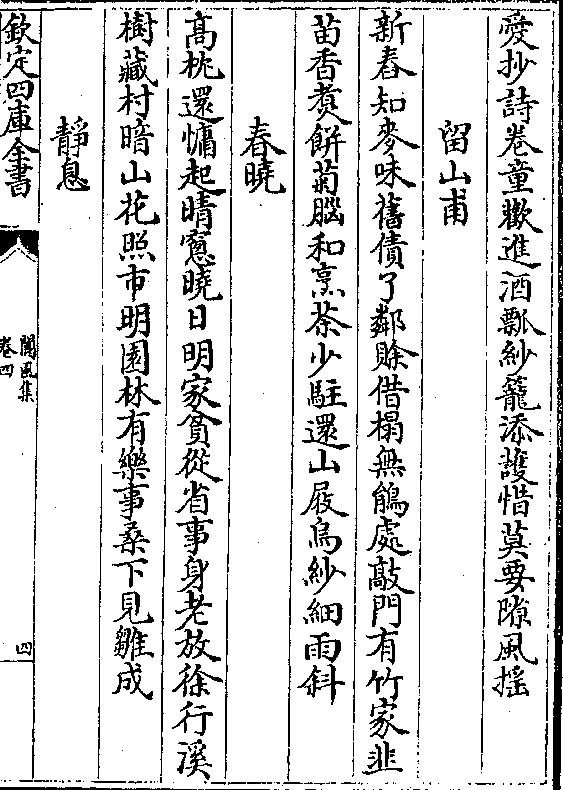 愛抄詩卷童歡進酒瓢紗籠添護惜莫要隙風摇
留山甫
新舂知麥味舊債了鄰賖借榻無鵤處敲門有竹家韭
苗香煑餅菊腦和烹茶少駐還山屐烏紗細雨斜
春曉
高枕還慵起晴窻曉日明家貧從省事身老放徐行溪
樹藏村暗山花照市明園林有樂事桑下見雛成
靜息
欽定四庫全書
閬風集
卷四
四